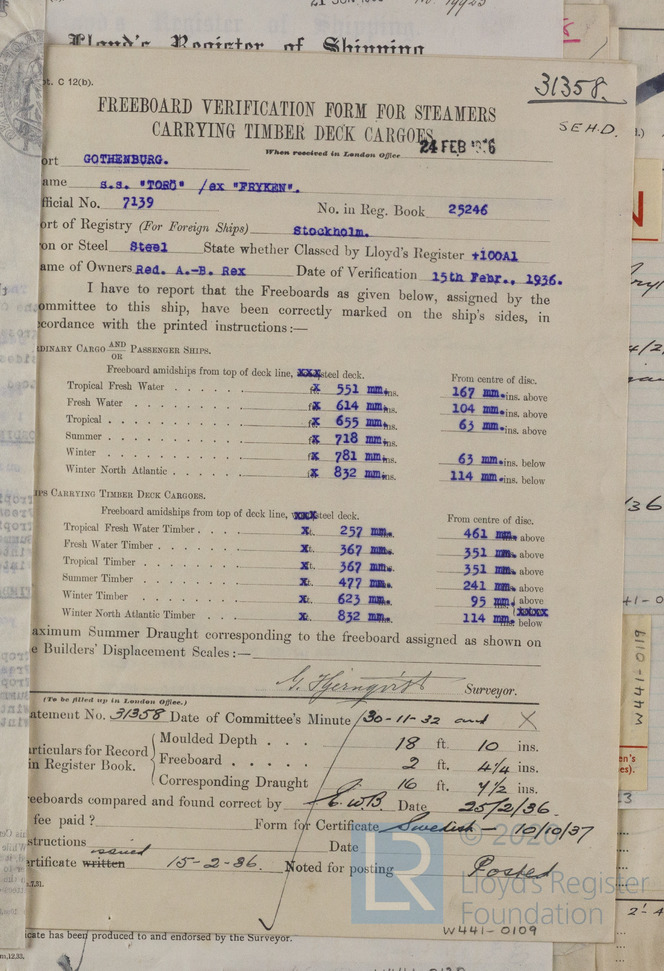 Lloyd's Register of Shipping
pt. C 12(b).
31358.
FREEBOARD VERIFICATION FORM FOR STEAMERS
CARRYING TIMBER DECK CARGOES
S.E.H.D.
When received in London Office 24 FEB 1936
ort GOTHENBURG.
ame s.s. "TORÖ" /ex "FRYKEN".
fficial No. 7139 No. in Reg. Book 25246
ort of Registry (For Foreign Ships) Stockholm.
on or Steel Steel State whether Classed by Lloyd's Register +100A1
ame of Owners Red. A.-B. Rex Date of Verification 15th Febr., 1936.
I have to report that the Freeboards as given below, assigned by the
ommittee to this ship, have been correctly marked on the ship's sides, in
ccordance with the printed instructions:—
DINARY CARGO AND OR PASSENGER SHIPS.
Freeboard amidships from top of deck line, xxx steel deck. From centre of disc.
Tropical Fresh Water . . . . . . x 551 mm. ins. 167 mm. ins. above
Fresh Water . . . . . . . . . x 614 mm. ins. 104 mm. ins. above
Tropical . . . . . . . . . . . x 655 mm. ins. 63 mm. ins. above
Summer . . . . . . . . . . . x 718 mm. ins.
Winter . . . . . . . . . . . x 781 mm. ins. 63 mm. ins. below
Winter North Atlantic . . . . . . x 832 mm. ins. 114 mm. ins. below
IPS CARRYING TIMBER DECK CARGOES.
Freeboard amidships from top of deck line, xxx steel deck. From centre of disc.
Tropical Fresh Water Timber . . . . x 257 mm. 461 mm. above
Fresh Water Timber . . . . . . . x 367 mm. 351 mm. above
Tropical Timber . . . . . . . . x 367 mm. 351 mm. above
Summer Timber . . . . . . . . x 477 mm. 241 mm. above
Winter Timber . . . . . . . . x 623 mm. 95 mm. above
Winter North Atlantic Timber . . . x 832 mm. 114 mm. xxxxx below
aximum Summer Draught corresponding to the freeboard assigned as shown on
e Builders' Displacement Scales:—
G. Hjernqvist Surveyor.
(To be filled up in London Office.)
atement No. 31358 Date of Committee's Minute 30-11-32 and X
articulars for Record in Register Book.
Moulded Depth . . . 18 ft. 10 ins.
Freeboard . . . . . 2 ft. 4 1/4 ins.
Corresponding Draught 16 ft. 7 1/2 ins.
eeboards compared and found correct by E.W.B. Date 25/2/36.
fee paid ? Form for Certificate Swedish — 10/10/37
structions Date
issued
ertificate written 15-2-36. Noted for posting Posted
cate has been produced to and endorsed by the Surveyor.
© 2020
LR
Lloyd's Register
Foundation
W441-0109
W441-0110